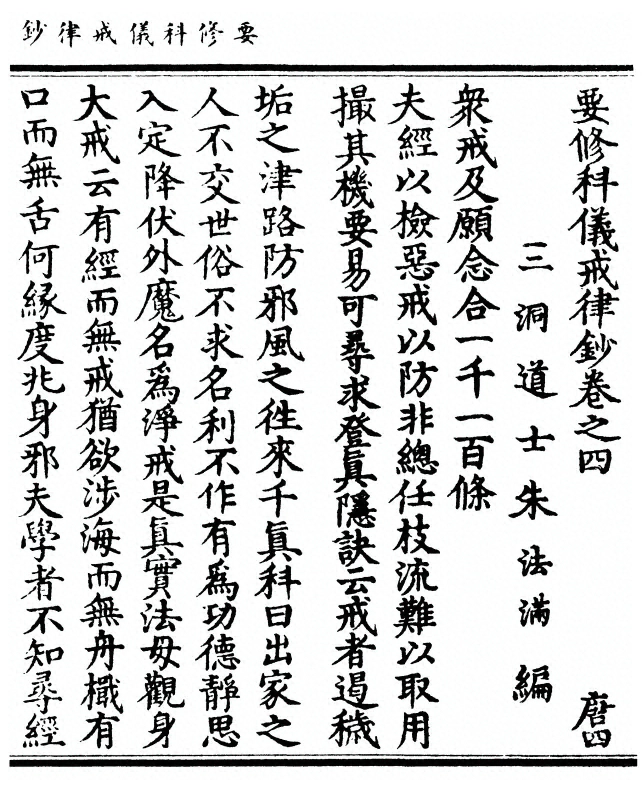 要修科儀戒律鈔
要修科儀戒律鈔卷之四 唐四
三洞道士朱法滿編
衆戒及願念合一千一百條
夫經以檢惡戒以防非總任枝流難以取用
撮其機要易可尋求登真隱訣云戒者遏穢
垢之津路防邪風之徃來千真科曰出家之
人不交世俗不求名利不作有爲功德靜思
入定降伏外魔名爲淨戒是真實法毋觀身
大戒云有經而無戒猶欲涉海而無舟檝有
口而無舌何緣度兆身邪夫學者不知尋經